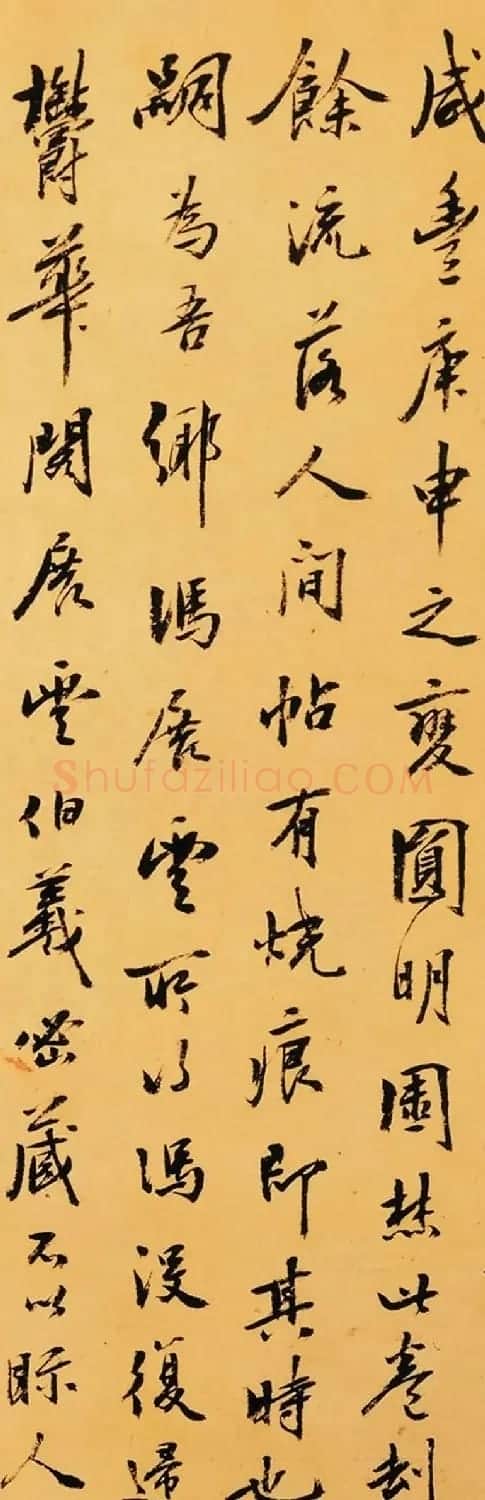 咸豐庚申之變圓明園焚此卷刦
餘流落人間帖有燒痕即其時也
嗣為吾鄉馮展雲所得馮沒復歸
鬱華閣展雲伯羲密藏不以眎人
Shufaziliao.COM